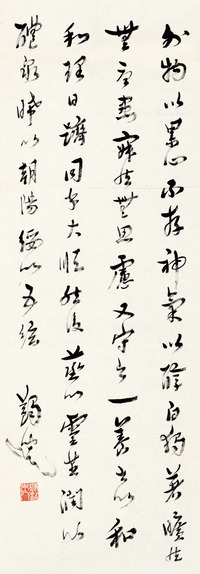 外物以累心不存神氣以醇白獨著曠然
無憂患寂然無思慮又守之一養之以和
和理日躋同乎大順然後蒸以靈芝潤以
醴泉晞以朝陽綏以五絃